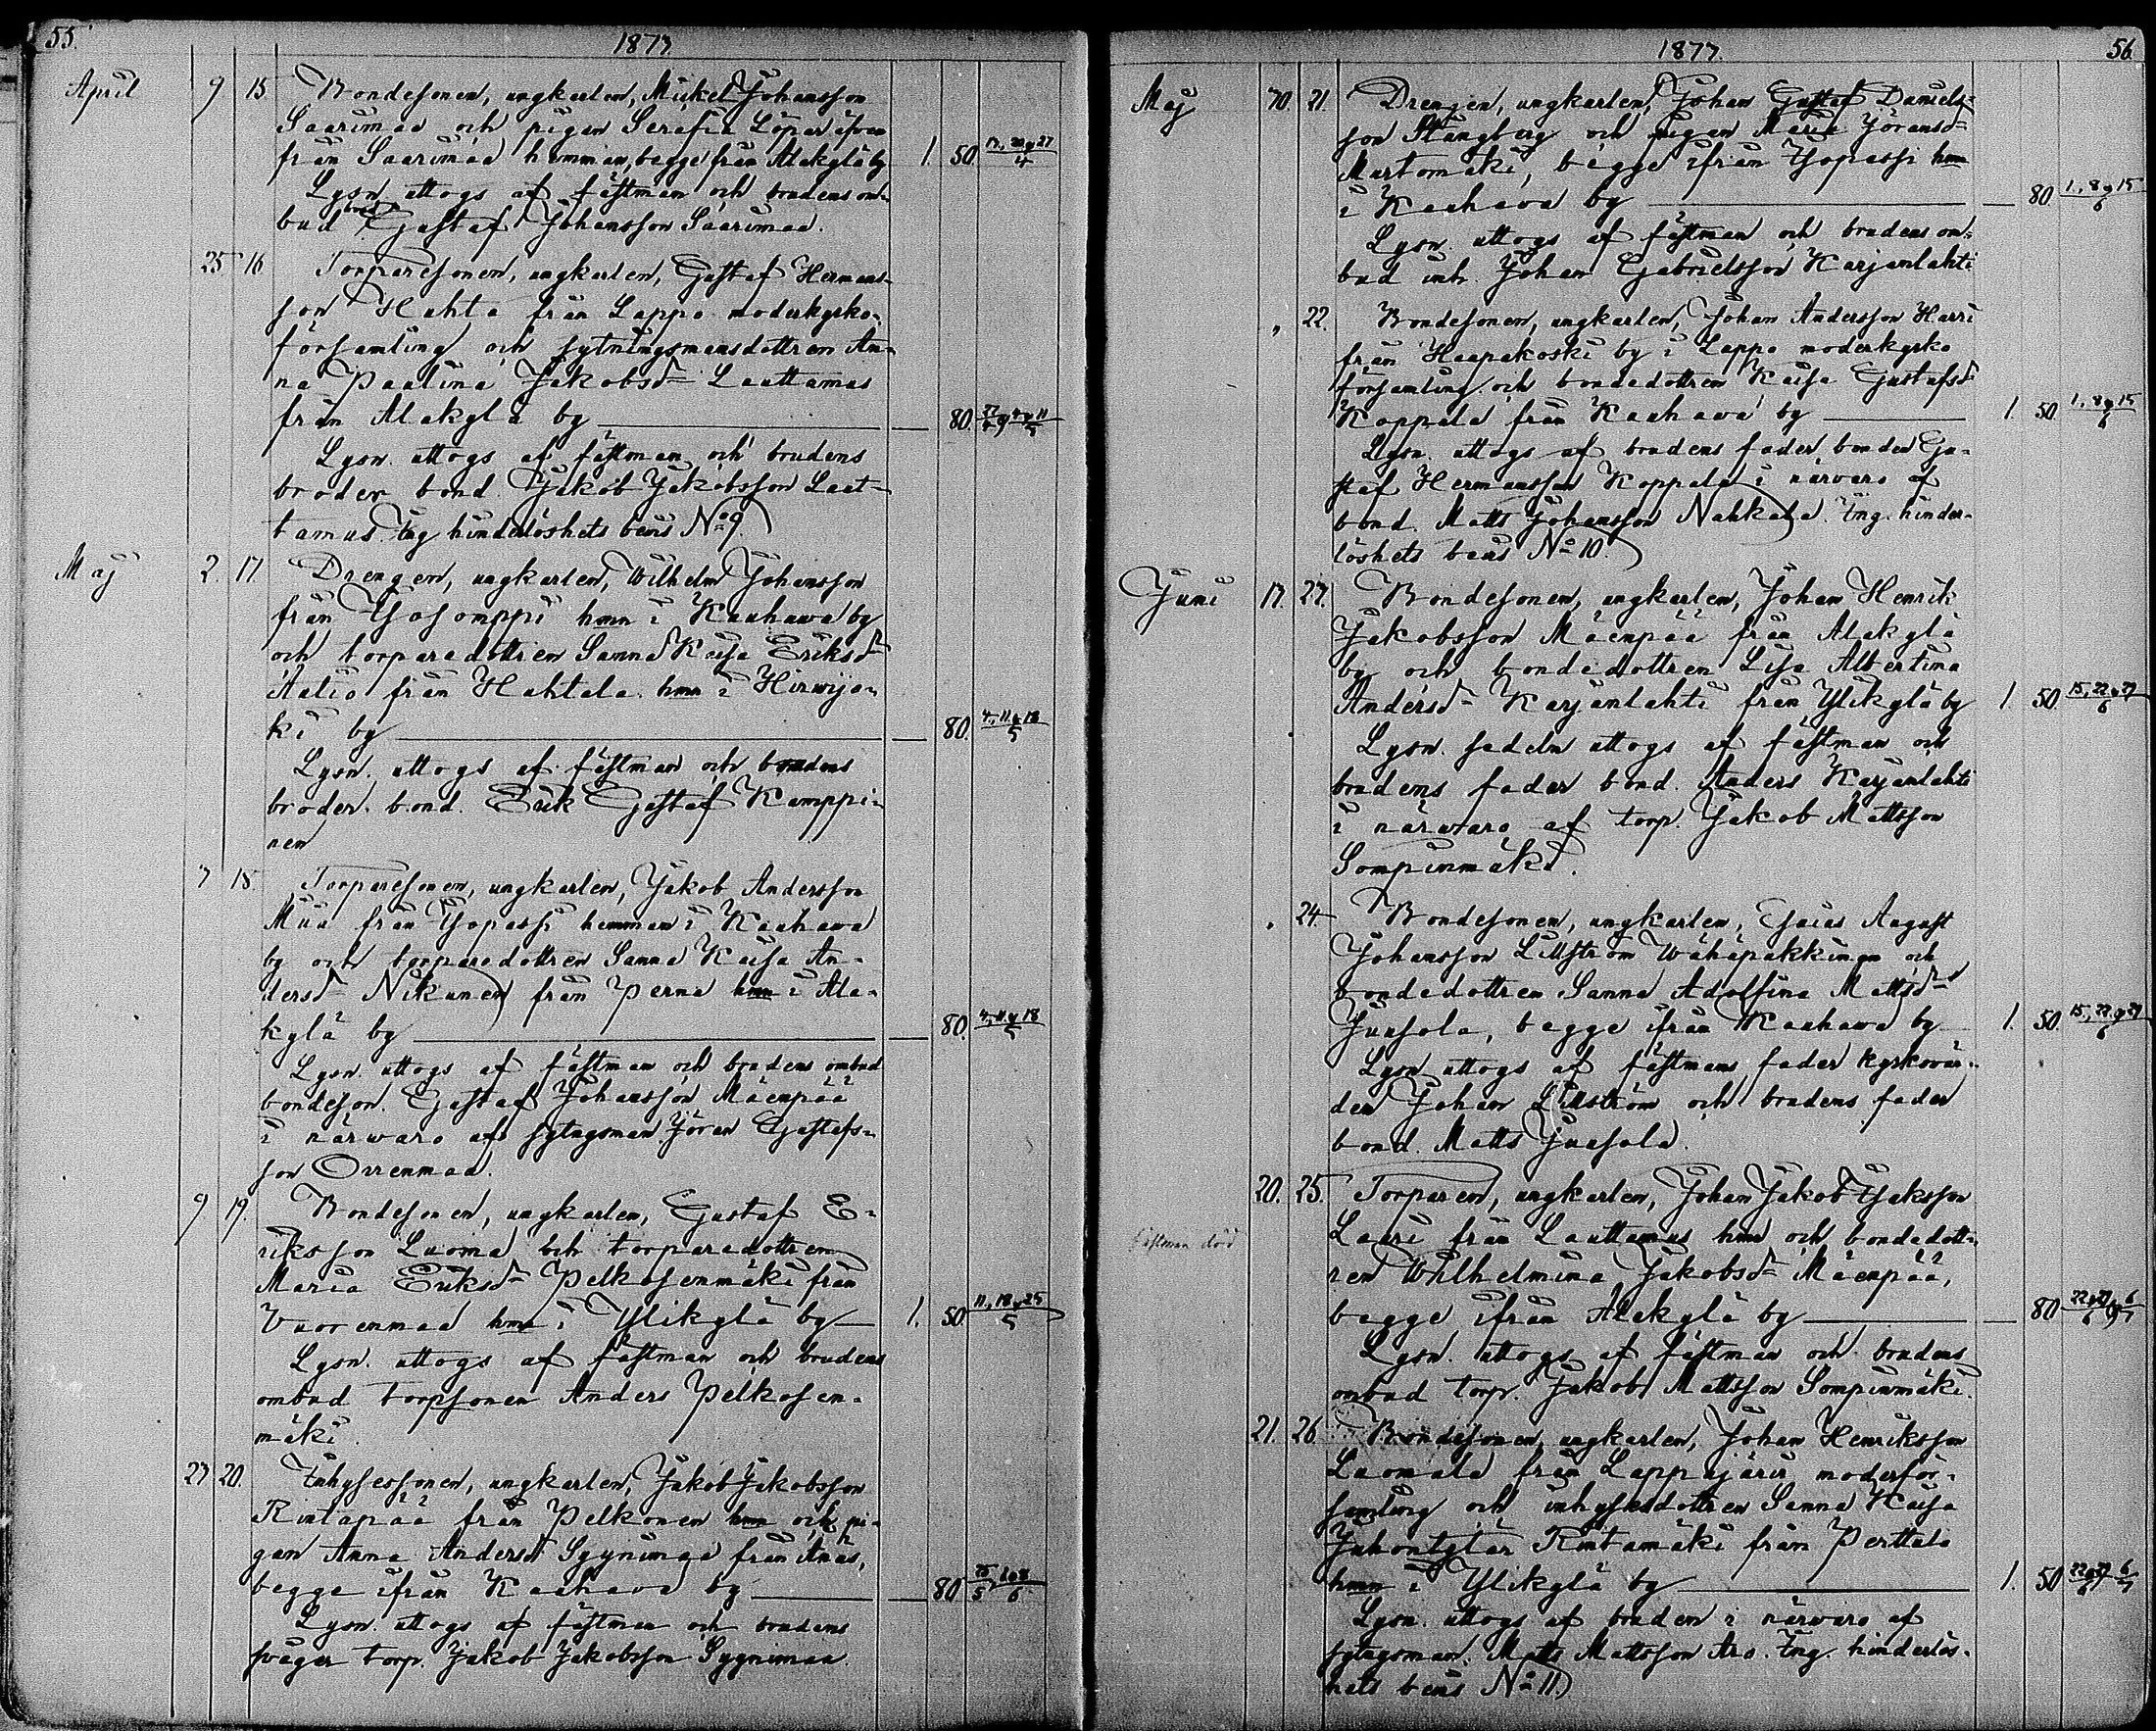 55.
1873
April 9 15 Bondesonen, ungkarlen, Mickel Johansson
Saarimaa och pigan Serafia Löpar ifrån
från Saarimaa hemman, begge från Alakylä by 1. 50.
Lysn. uttogs af fästman och brudens om-
bud Gustaf Johansson Saarimaa.
25 16 Torparesonen, ungkarlen, Gustaf Hermans-
son Hahto från Lappo moderkyrko-
församling och sytningsmansdottren An-
na Paulina Jakobsd Lauttamus
från Alakylä by — 80.
Lysn. uttogs af fästman och brudens
broder bond. Jakob Jakobsson Laut-
tamus. Ing. hinderlöshets bevis No 9.
Maj 2. 17. Drengen, ungkarlen, Wilhelm Johansson
från Isosomppi hmn i Kauhawa by
och torparedottren Sanna Kaisa Eriksd
Autio från Huhtala hmn i Hirwijo-
ki by — 80. 4, 11 & 18/5
Lysn. uttogs af fästman och brudens
broder bond. Erik Gustaf Kamppi-
nen
7 18. Torparesonen, ungkarlen, Jakob Andersson
Mua från Isopassi hemman i Kauhawa
by och torparedottren Sanna Kaisa An-
dersd Nikunen från Perna hmn i Ala-
kylä by — 80. 4, 11 & 18/5
Lysn. uttogs af fästman och brudens ombud
bondeson. Gustaf Johansson Mäenpää
i närwaro af sytngsman Jöran Gustafs-
son Orrenmaa.
9 19. Bondesonen, ungkarlen, Gustaf E-
riksson Luoma och torparedottren
Maria Eriksd Pelkosenmäki från
Vuorenmaa hmn i Ylikylä by 1. 50. 11, 18 & 25/5
Lysn. uttogs af fästman och brudens
ombud torpsonen Anders Pelkosen-
mäki.
23 20. Inhysessonen, ungkarlen, Jakob Jakobsson
Rintapää från Pelkonen hmn och pi-
gan Anna Andersd Syynimaa från Änäs,
begge ifrån Kauhava by — 80
Lysn. uttogs af fästman och brudens
swåger torp. Jakob Jakobsson Syynimaa
1873.
56.
Maj 30. 21. Drengen, ungkarlen, Johan Gustaf Daniels-
son Stångberg och pigan Maria Göransd
Martomäki, begge ifrån Isopassi hmn
i Kauhava by — 80 1, 8 & 15/6
Lysn. uttogs af fästman och brudens om-
bud inh. Johan Gabrielsson Karjanlahti
" 22. Bondesonen, ungkarlen, Johan Andersson Harri
från Haapakoski by i Lappo moderkyrko
församling och bondedottren Kaisa Gustafsd
Koppala från Kauhawa by — 1. 50. 1, 8 & 15/6
Lysn. uttogs af brudens fader bonden Gu-
staf Hermansson Koppala i närvaro af
bond. Matts Johansson Nahkala. Ing. hinder-
löshets bevis No 10.
Juni 17. 23. Bondesonen, ungkarlen, Johan Henrik
Jakobsson Mäenpää från Alakylä
by och bondedottren Lisa Albertina
Andersd Karjanlahti från Ylikylä by 1. 50.
Lysn. sedeln uttogs af fästman och
brudens fader bond. Anders Karjanlahti
i närwaro af torp. Jakob Mattsson
Sompinmäki.
" 24. Bondesonen, ungkarlen, Esaias August
Johansson Lillström Wähäpakkinen och
bondedottren Sanna Adolfina Mattsd
Juusola, begge ifrån Kauhawa by 1. 50.
Lysn. uttogs af fästmans fader kyrkovär-
den Johan Lillström och brudens fader
bond. Matts Juusola.
20. 25. Torparen, ungkarlen, Johan Jakob Isaksson
fästman död
Lauri från Lauttamus hmn och bondedott-
ren Wilhelmina Jakobsd Mäenpää,
begge ifrån Alakylä by — 80
Lysn. uttogs af fästman och brudens
ombud torp. Jakob Mattsson Sompinmäki.
21. 26. Bondesonen, ungkarlen, Johan Henriksson
Luomala från Lappajärvi moderför-
samling och inhysesdottren Sanna Kaisa
Juhontytär Rintamäki från Perttula
hmn i Ylikylä by — 1. 50
Lysn. uttogs af bruden i närwaro af
sytngsman. Matts Mattsson Aro. Ing. hinderlös-
hets bevis No 11.